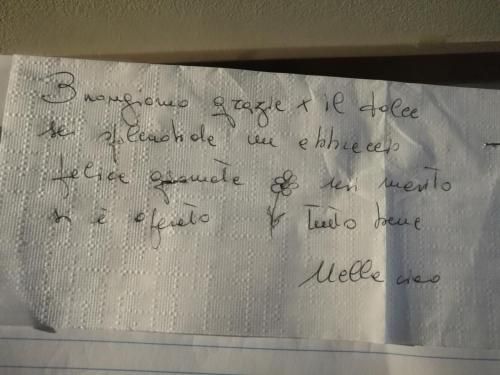 Buongiorno grazie x il dolce
sei splendide un abbraccio
felice giornata mi marito
si è operato Tutto bene
Mella ciao